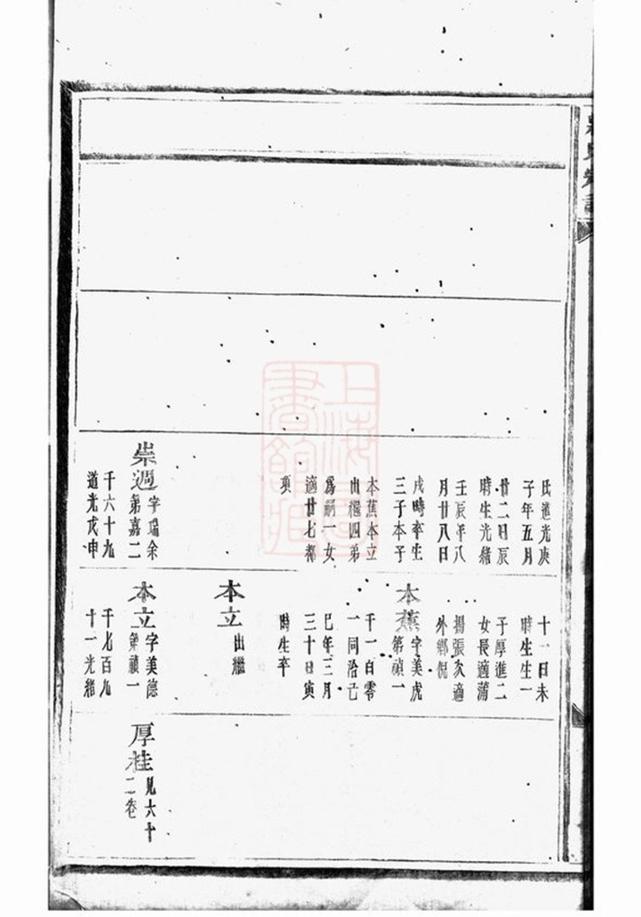 氏道光庚
子年五月
廿二日辰
時生光緒
壬辰年八
月廿八日
戌時卒生
三子本子
本蕉本立
出繼四弟
為嗣一女
適廿七都
項
崇週 字瑞余
第嘉二
千六十九
道光戊申
十一日未
時生生一
子厚進二
女長適蒲
楊張次適
外鄉倪
本蕉 字美虎
第禎一
千一百零
一同治己
巳年三月
三十日寅
時生卒
本立 出繼
本立 字美德
第禎一
千七百九
十一光緒
厚桂 見六十
二卷
上海圖書館藏